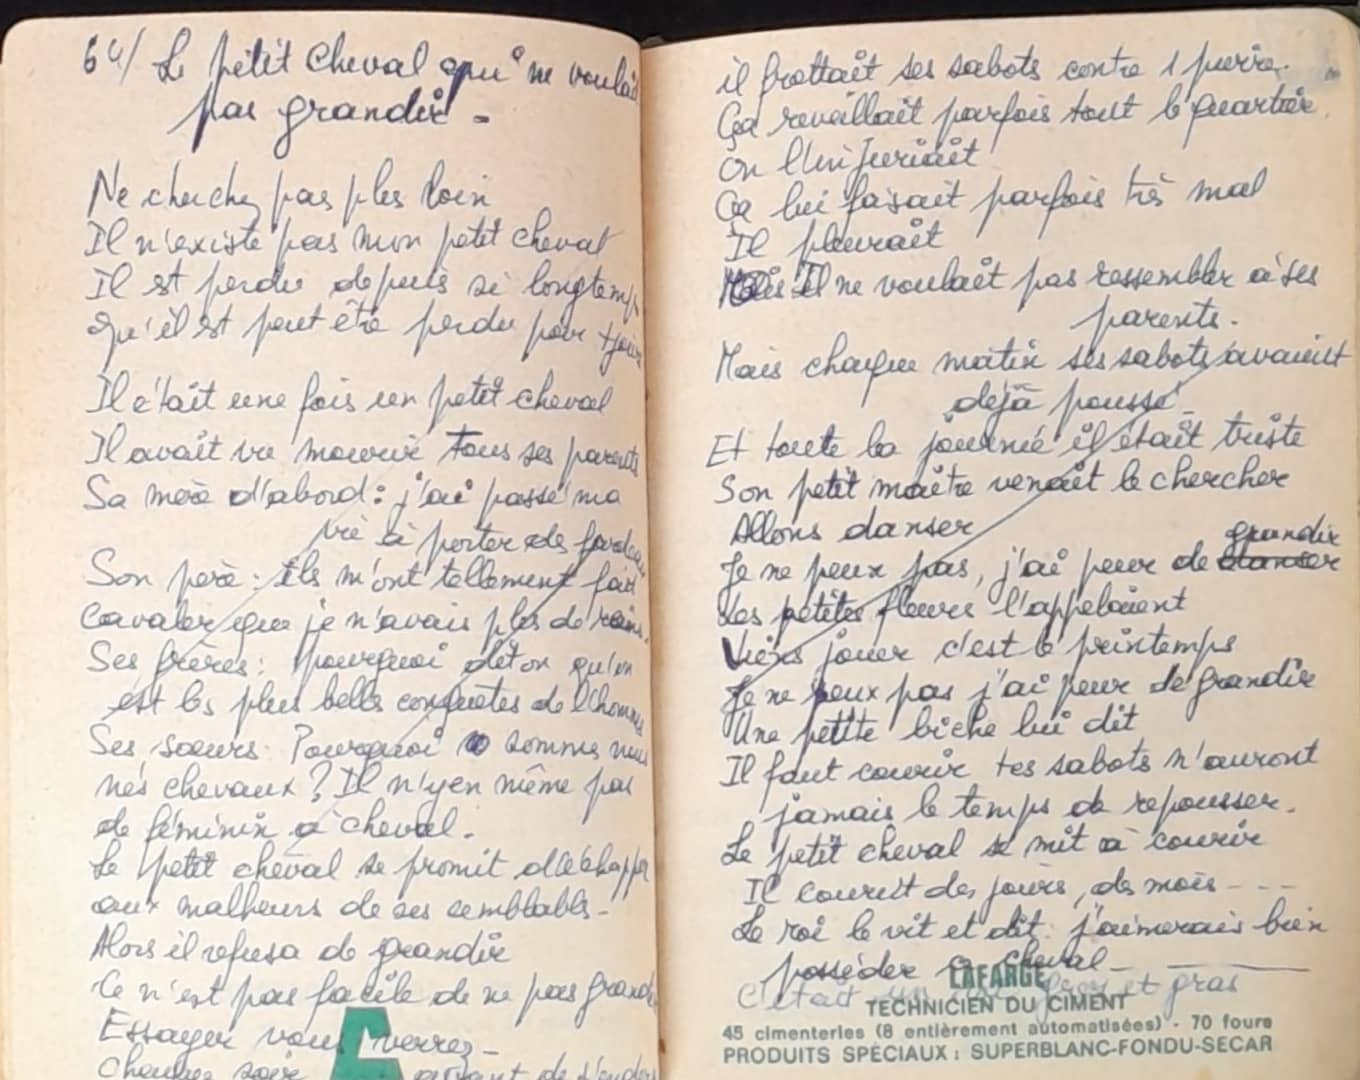 64/ Le petit cheval qui ne voulait
pas grandir -
Ne cherchez pas plus loin
Il n'existe pas mon petit cheval
Il est perdu depuis si longtemps
Qu'il est peut être perdu pour tjours
Il était une fois un petit cheval
Il avait vu mourir tous ses parents
Sa mère d'abord : j'ai passé ma
vie à porter des fardeaux
Son père : ils m'ont tellement fait
cavaler que je n'avais plus de reins.
Ses frères : pourquoi dit on qu'on
est les plus belles conquêtes de l'homme
Ses soeurs : Pourquoi sommes nous
nés chevaux ? Il n'y en même pas
de féminin à cheval.
Le petit cheval se promit d'échapper
aux malheurs de ses semblables -
Alors il refusa de grandir
Ce n'est pas facile de ne pas grandir
Essayer vous verrez -
Chaque soir avant de s'endor
il frottait ses sabots contre 1 pierre.
Ça reveillait parfois tout le quartier.
On l'injuriait
Ça lui faisait parfois très mal
Il pleurait
Mais Il ne voulait pas ressembler à ses
parents.
Mais chaque matin ses sabots avaient
déjà poussé -
Et toute la journée il était triste
Son petit maître venait le chercher
Allons danser
Je ne peux pas, j'ai peur de danser grandir
Les petites fleurs l'appelaient
Viens jouer c'est le printemps
Je ne peux pas j'ai peur de grandir
Une petite biche lui dit
Il faut courir tes sabots n'auront
jamais le temps de repousser.
Le petit cheval se mit à courir
Il courut des jours, des mois - - - -
Le roi le vit et dit : j'aimerais bien
posséder ce cheval -
C'était un gros et gras
LAFARGE
TECHNICIEN DU CIMENT
45 cimenteries (8 entièrement automatisées) - 70 fours
PRODUITS SPÉCIAUX : SUPERBLANC-FONDU-SECAR